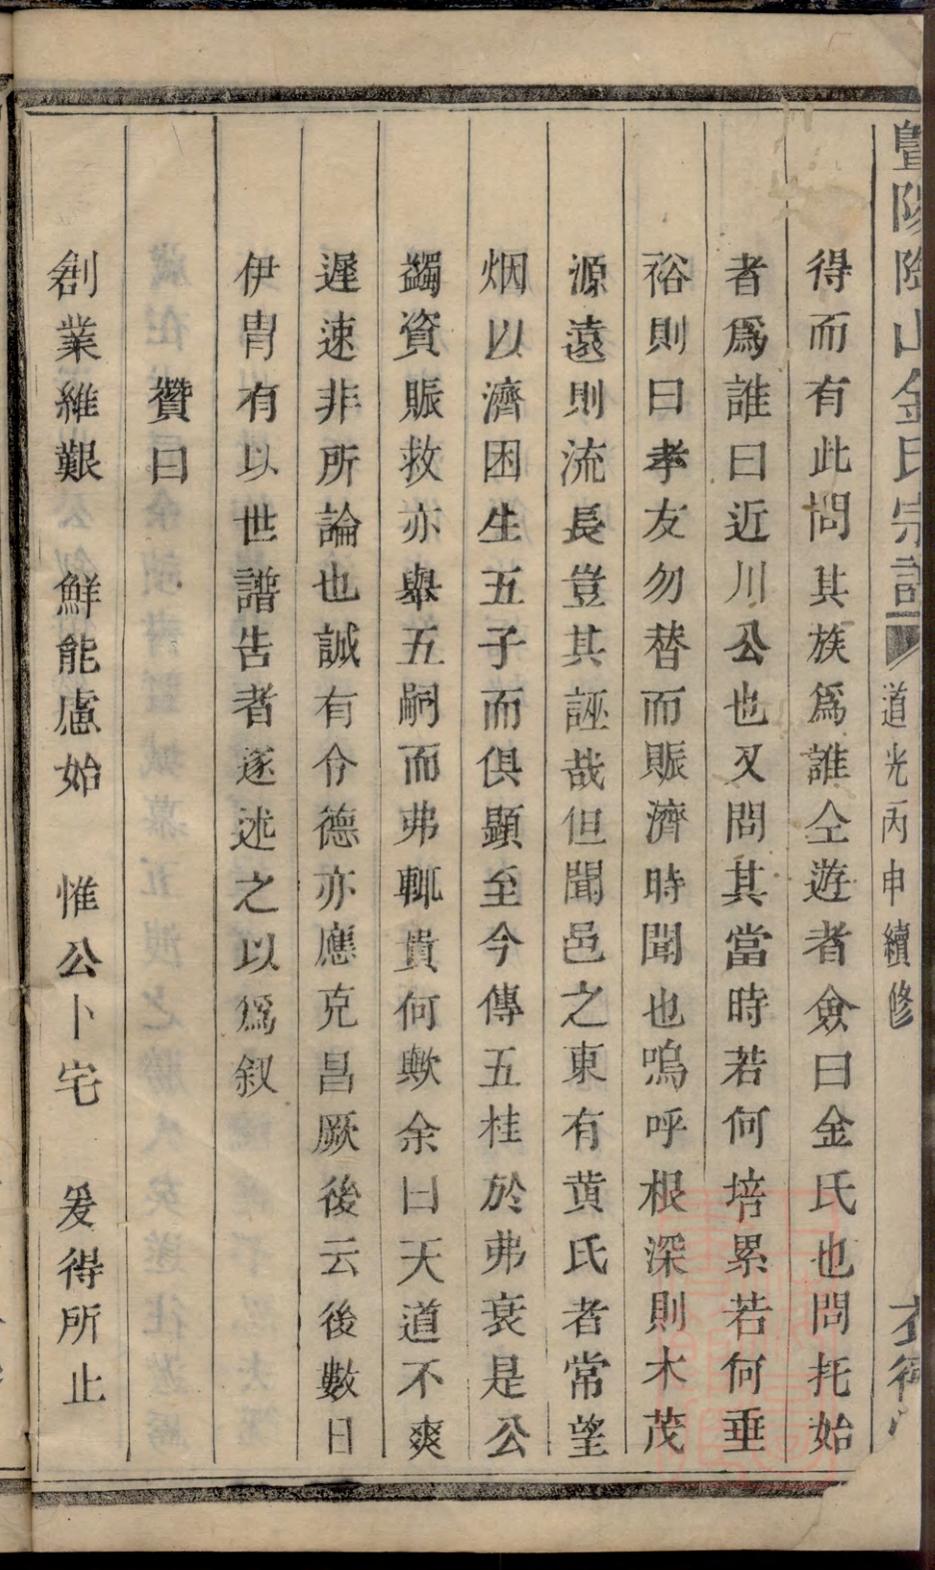 暨陽陰山金氏宗譜 道光丙申續修
得而有此問其族爲誰仝遊者僉曰金氏也問托始
者爲誰曰近川公也又問其當時若何培累若何垂
裕則曰孝友勿替而賑濟時聞也嗚呼根深則木茂
源遠則流長豈其誣哉但聞邑之東有黄氏者常望
烟以濟困生五子而俱顯至今傳五桂於弗衰是公
蠲資賑救亦舉五嗣而弗輒貴何歟余曰天道不爽
遲速非所論也誠有令德亦應克昌厥後云後數日
伊胄有以世譜告者遂述之以爲叙
贊曰
創業維艱 鮮能慮始 惟公卜宅 爰得所止